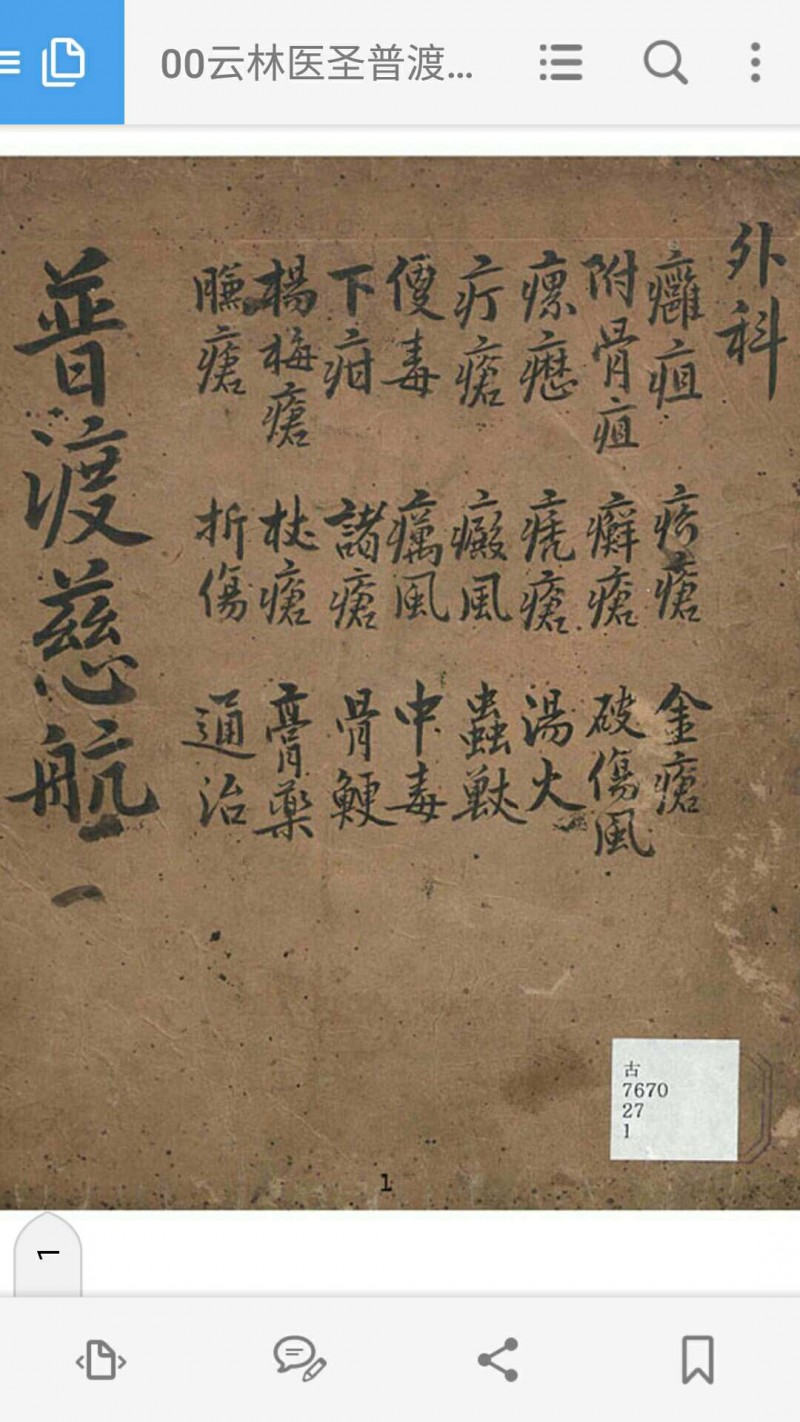 00云林医圣普渡...
外科
癰疽 疥瘡 金瘡
附骨疽 癬瘡 破傷風
瘰癧 禿瘡 湯火
疔瘡 癜風 蟲獸
便毒 癘風 中毒
下疳 諸瘡 骨鯁
楊梅瘡 杖瘡 膏藥
臁瘡 折傷 通治
普渡慈航 一
古
7670
27
1
1
1